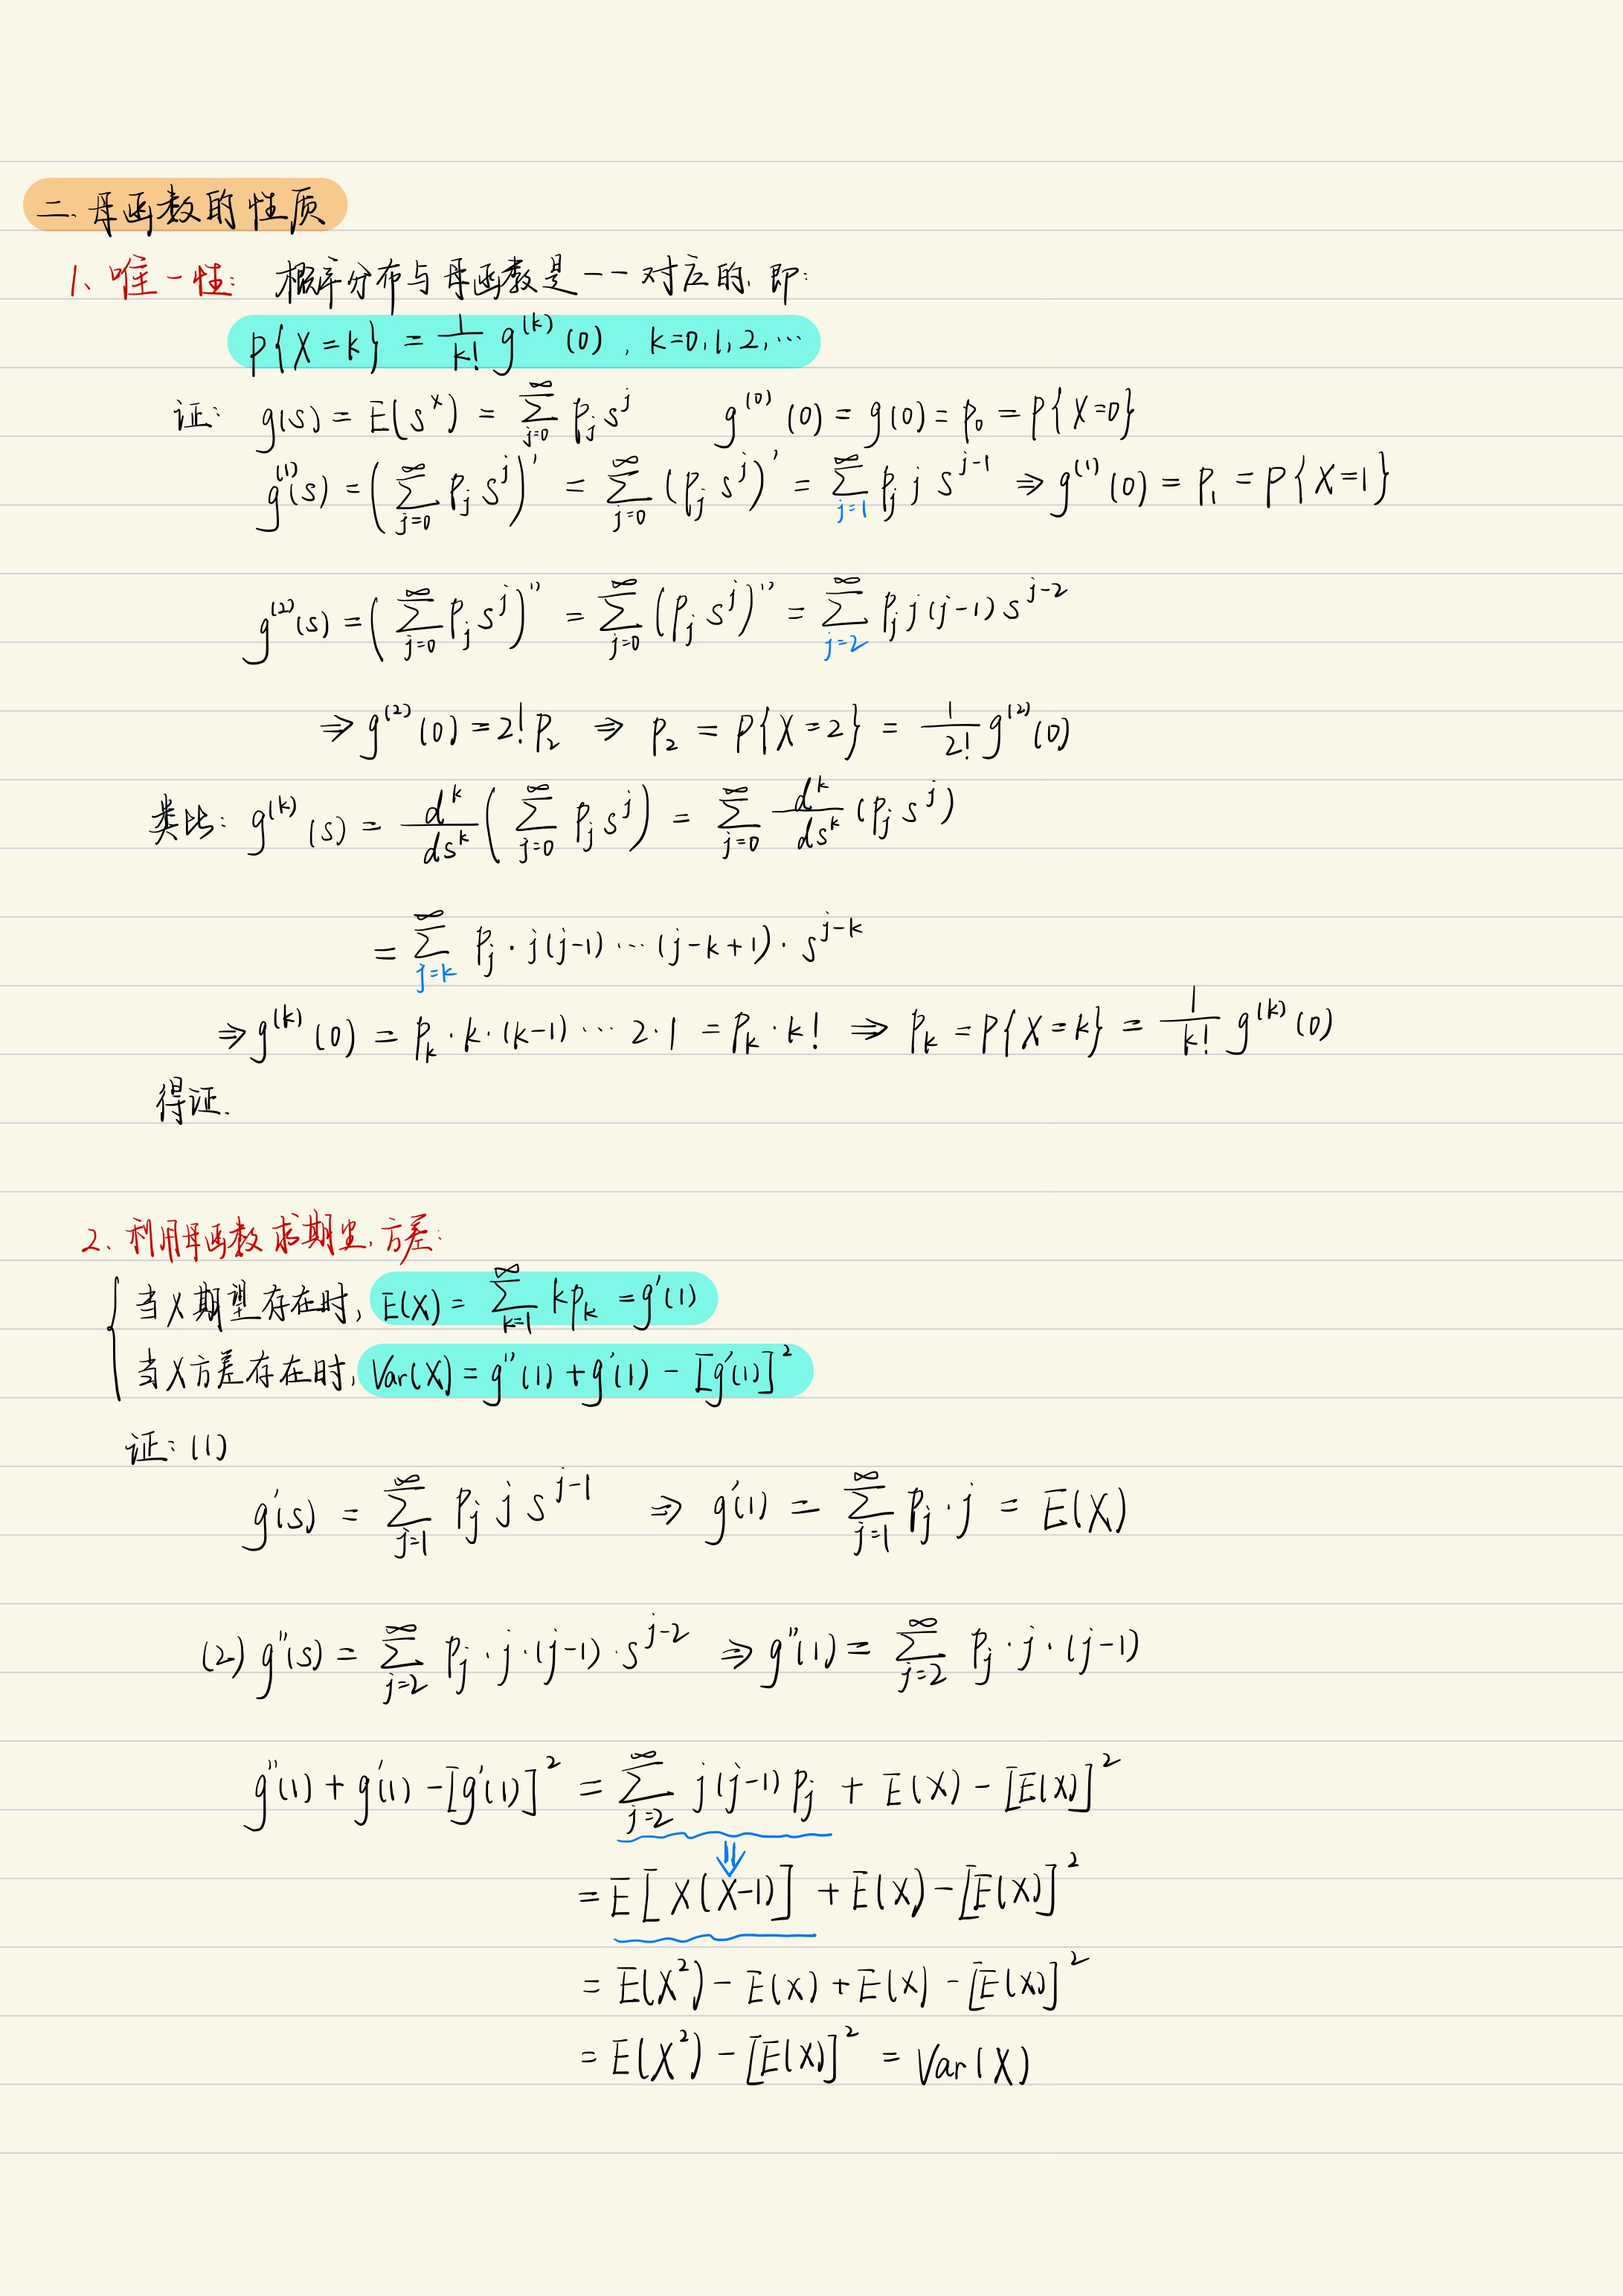 二.母函数的性质
1、唯一性: 概率分布与母函数是一一对应的, 即:
P{X=k} = \frac{1}{k!} g^{(k)}(0), k=0,1,2,…
证: g(s) = E(s^X) = \sum_{j=0}^{∞} p_j s^j    g^{(0)}(0) = g(0) = p_0 = P{X=0}
g^{(1)}(s) = (\sum_{j=0}^{∞} p_j s^j)' = \sum_{j=0}^{∞} (p_j s^j)' = \sum_{j=1}^{∞} p_j j s^{j-1} ⇒ g^{(1)}(0) = p_1 = P{X=1}
g^{(2)}(s) = (\sum_{j=0}^{∞} p_j s^j)'' = \sum_{j=0}^{∞} (p_j s^j)'' = \sum_{j=2}^{∞} p_j j(j-1) s^{j-2}
⇒ g^{(2)}(0) = 2! p_2 ⇒ p_2 = P{X=2} = \frac{1}{2!} g^{(2)}(0)
类比: g^{(k)}(s) = \frac{d^k}{ds^k} (\sum_{j=0}^{∞} p_j s^j) = \sum_{j=0}^{∞} \frac{d^k}{ds^k} (p_j s^j)
= \sum_{j=k}^{∞} p_j · j(j-1) ··· (j-k+1) · s^{j-k}
⇒ g^{(k)}(0) = p_k · k · (k-1) ··· 2·1 = p_k · k! ⇒ p_k = P{X=k} = \frac{1}{k!} g^{(k)}(0)
得证.
2、利用母函数求期望、方差:
当X期望存在时, E(X) = \sum_{k=1}^{∞} k p_k = g'(1)
当X方差存在时, Var(X) = g''(1) + g'(1) - [g'(1)]^2
证: (1)
g'(s) = \sum_{j=1}^{∞} p_j j s^{j-1} ⇒ g'(1) = \sum_{j=1}^{∞} p_j · j = E(X)
(2) g''(s) = \sum_{j=2}^{∞} p_j · j · (j-1) · s^{j-2} ⇒ g''(1) = \sum_{j=2}^{∞} p_j · j · (j-1)
g''(1) + g'(1) - [g'(1)]^2 = \sum_{j=2}^{∞} j(j-1) p_j + E(X) - [E(X)]^2
⇓
= E[X(X-1)] + E(X) - [E(X)]^2
= E(X^2) - E(X) + E(X) - [E(X)]^2
= E(X^2) - [E(X)]^2 = Var(X)